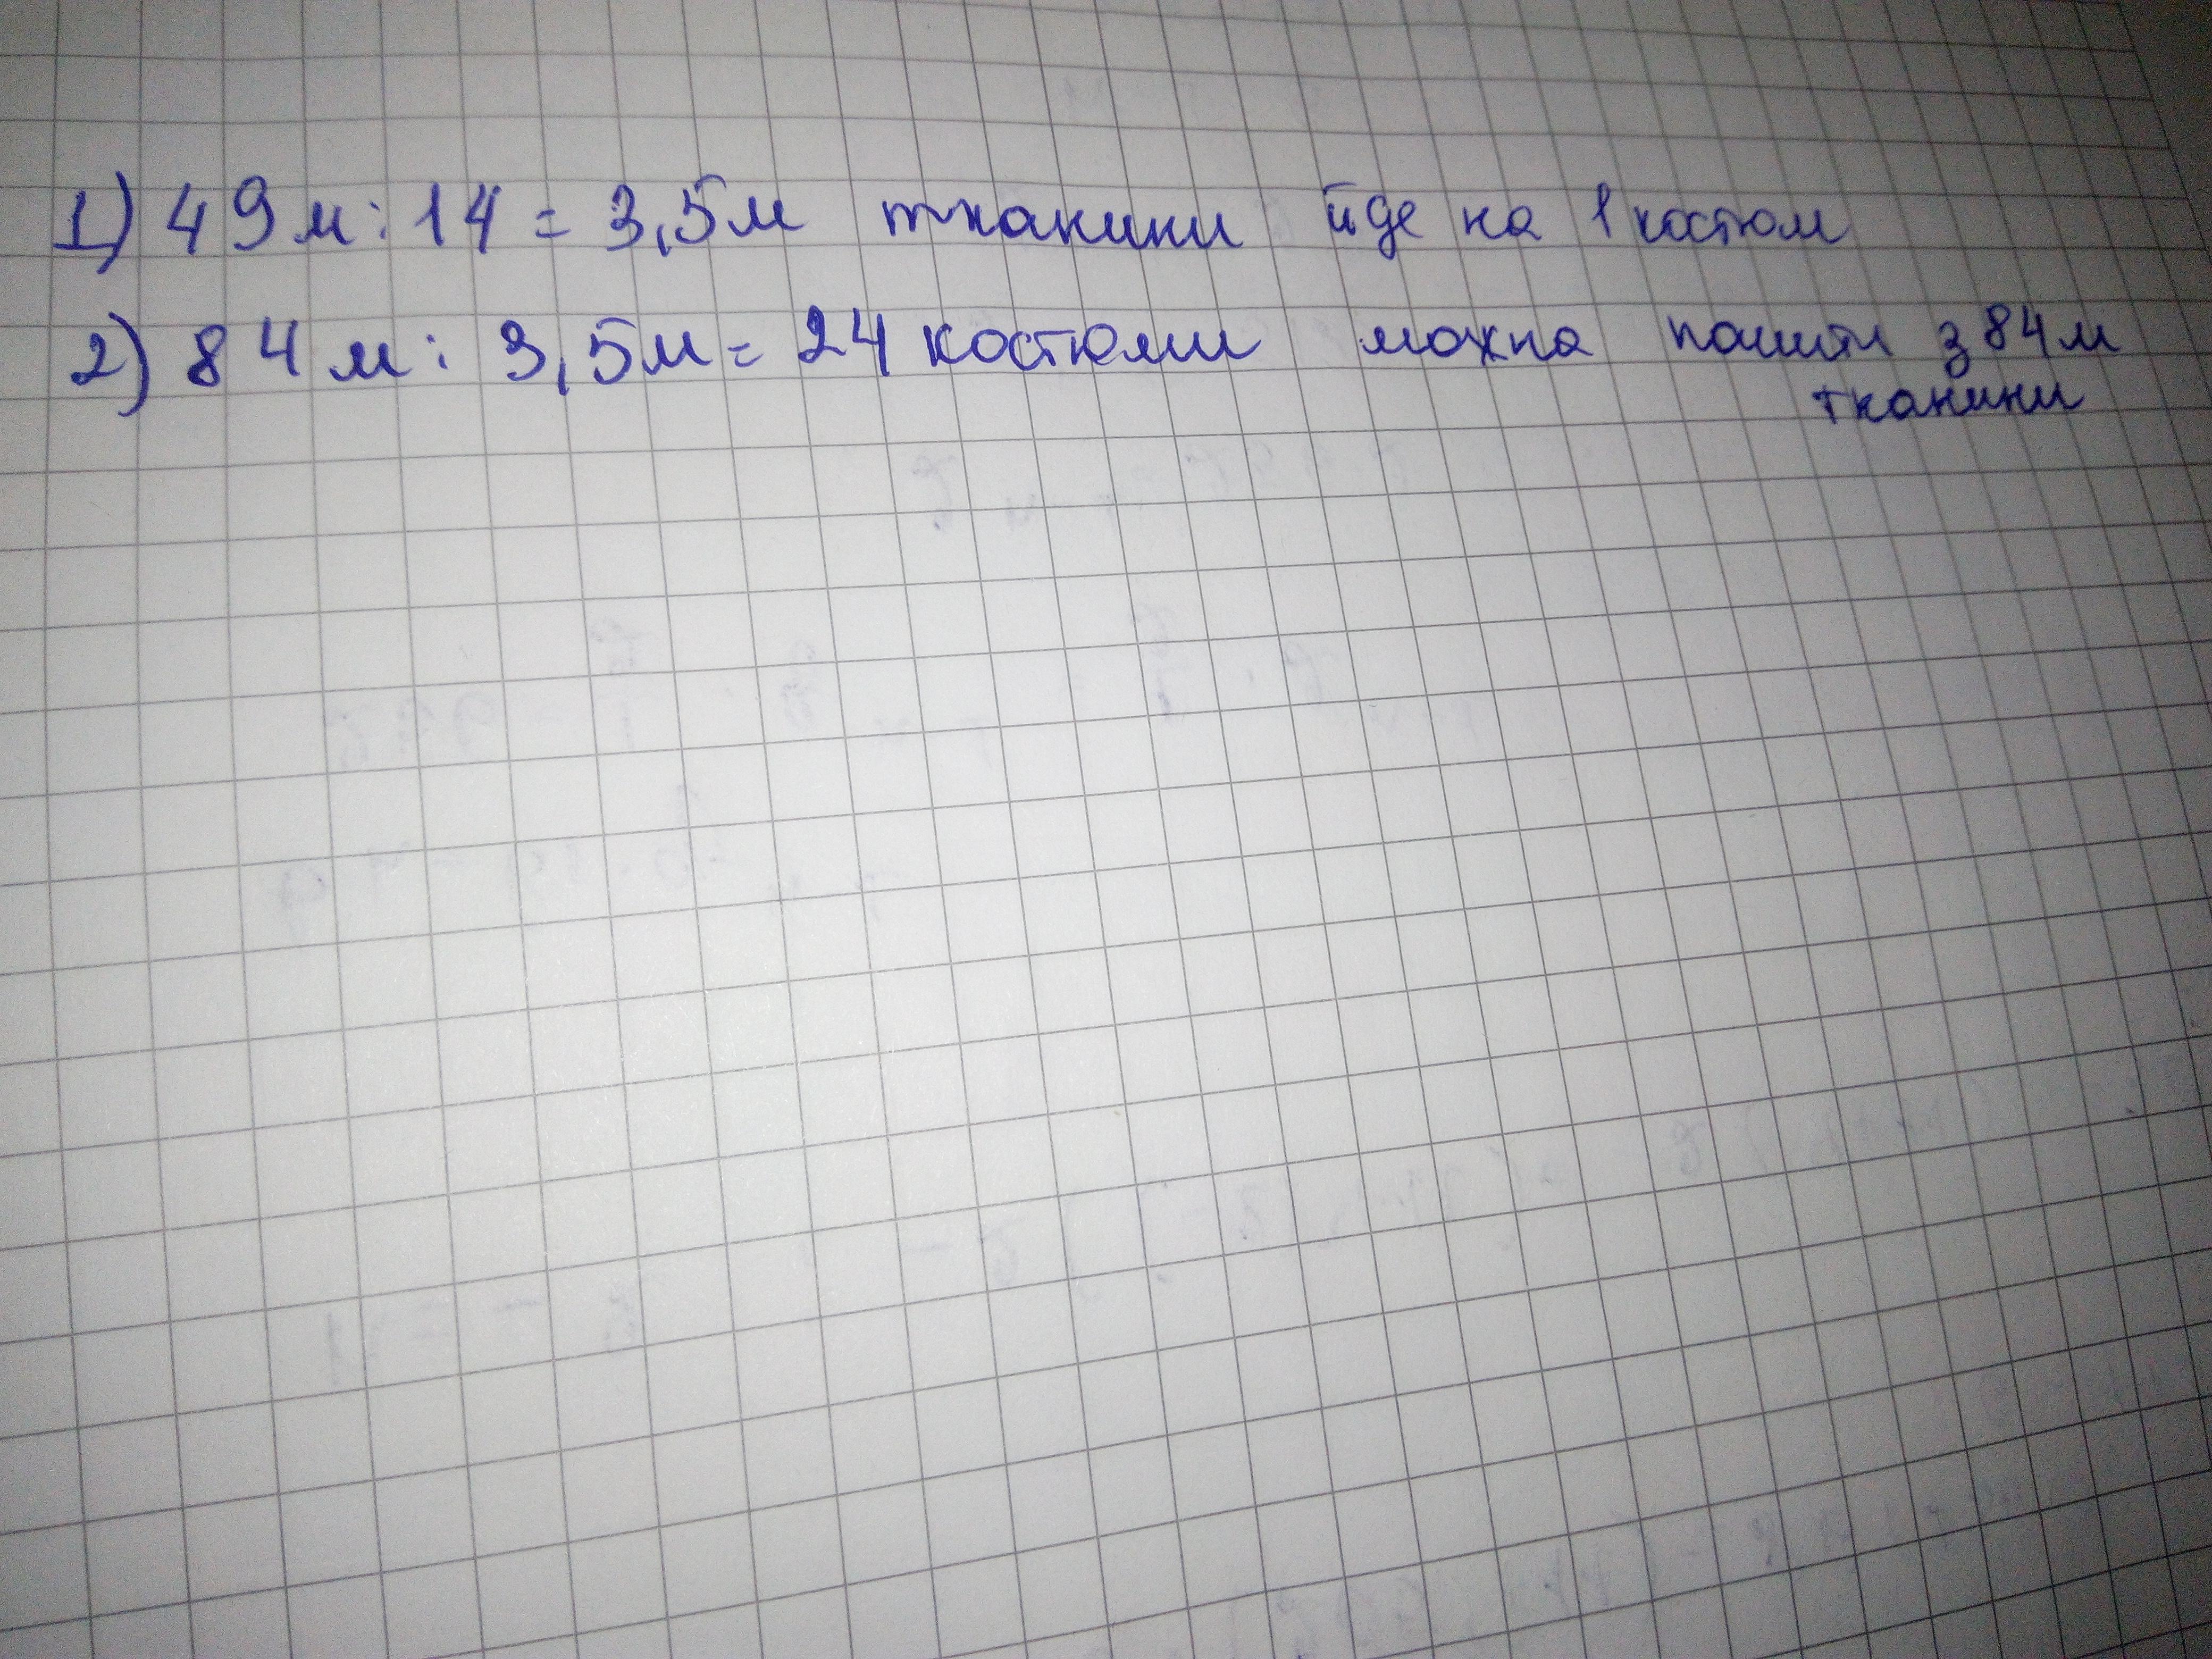 1) 49м : 14 = 3,5м тканини йде на 1 костюм
2) 84 м : 3,5м = 24 костюми можна пошити з 84м
тканини